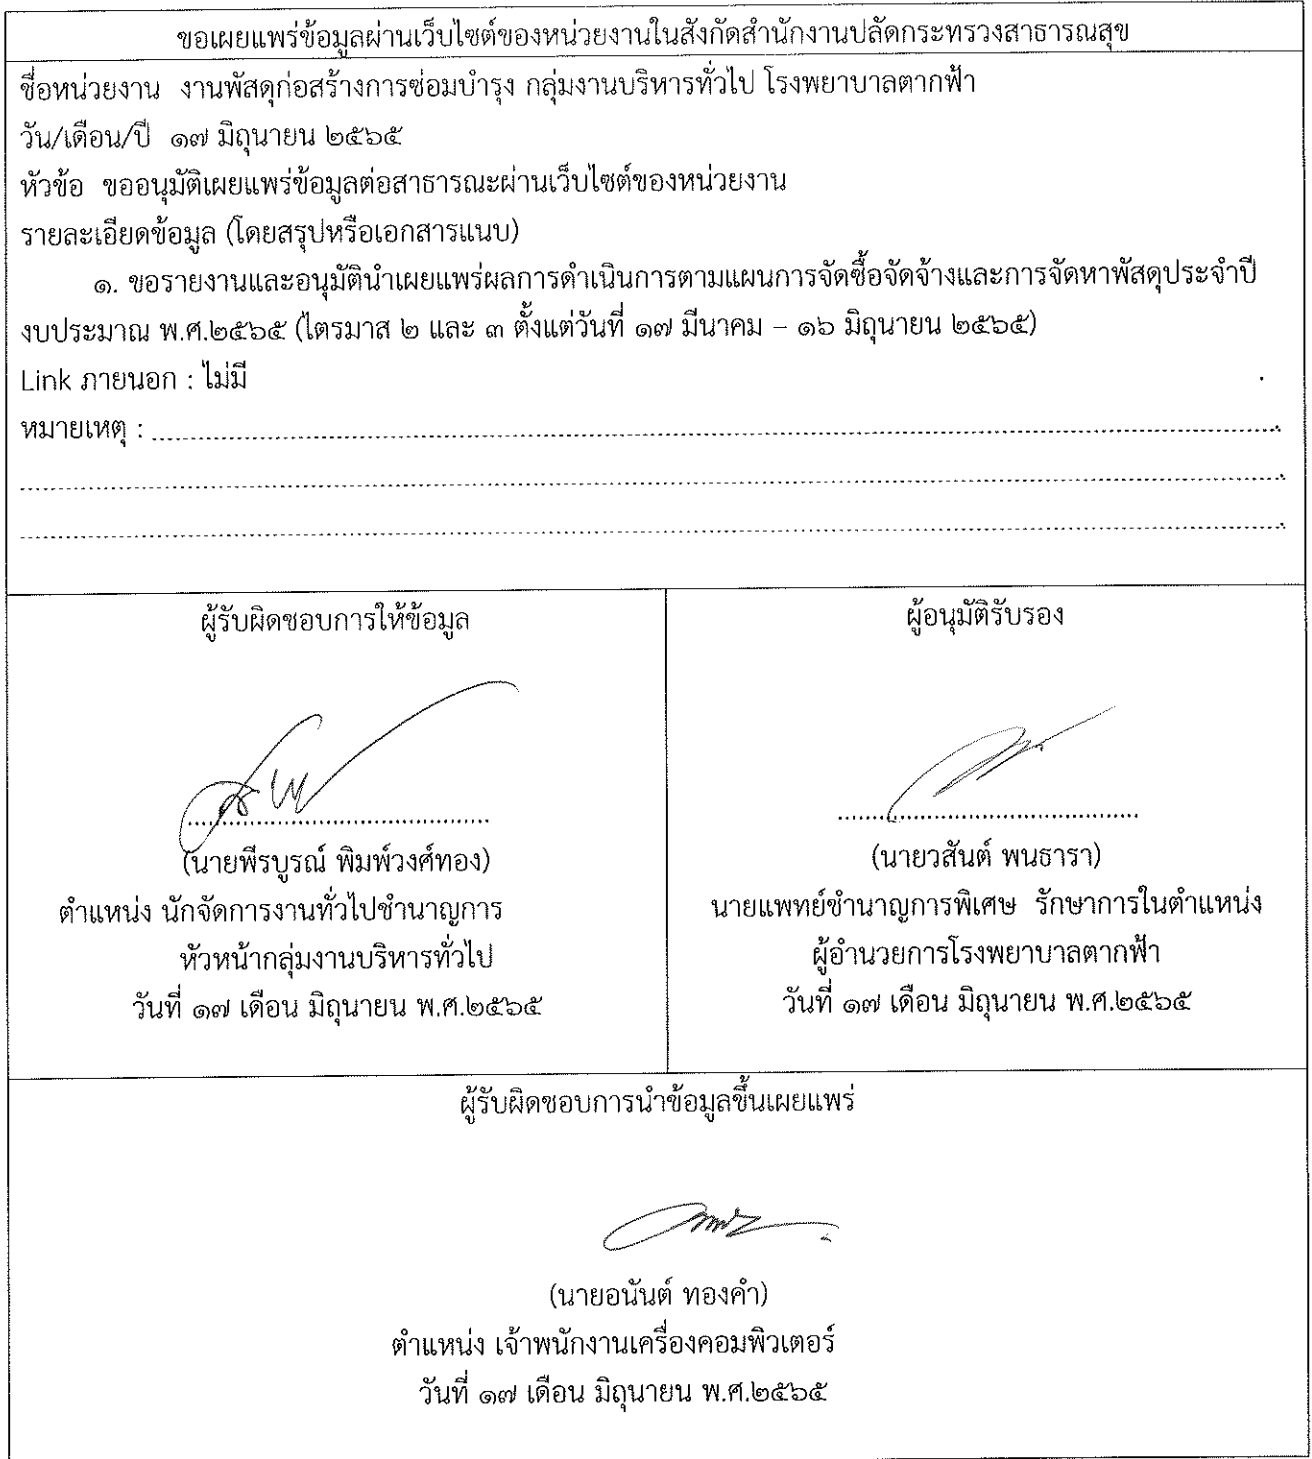 ขอเผยแพร่ข้อมูลผ่านเว็บไซต์ของหน่วยงานในสังกัดสำนักงานปลัดกระทรวงสาธารณสุข
ชื่อหน่วยงาน งานพัสดุก่อสร้างการซ่อมบำรุง กลุ่มงานบริหารทั่วไป โรงพยาบาลตากฟ้า
วัน/เดือน/ปี ๑๗ มิถุนายน ๒๕๖๕
หัวข้อ ขออนุมัติเผยแพร่ข้อมูลต่อสาธารณะผ่านเว็บไซต์ของหน่วยงาน
รายละเอียดข้อมูล (โดยสรุปหรือเอกสารแนบ)
๑. ขอรายงานและอนุมัตินำเผยแพร่ผลการดำเนินการตามแผนการจัดซื้อจัดจ้างและการจัดหาพัสดุประจำปี
งบประมาณ พ.ศ.๒๕๖๕ (ไตรมาส ๒ และ ๓ ตั้งแต่วันที่ ๑๗ มีนาคม – ๑๖ มิถุนายน ๒๕๖๕)
Link ภายนอก : ไม่มี
หมายเหตุ :
ผู้รับผิดชอบการให้ข้อมูล
(นายพีรบูรณ์ พิมพ์วงศ์ทอง)
ตำแหน่ง นักจัดการงานทั่วไปชำนาญการ
หัวหน้ากลุ่มงานบริหารทั่วไป
วันที่ ๑๗ เดือน มิถุนายน พ.ศ.๒๕๖๕
ผู้อนุมัติรับรอง
(นายวสันต์ พนธารา)
นายแพทย์ชำนาญการพิเศษ รักษาการในตำแหน่ง
ผู้อำนวยการโรงพยาบาลตากฟ้า
วันที่ ๑๗ เดือน มิถุนายน พ.ศ.๒๕๖๕
ผู้รับผิดชอบการนำข้อมูลขึ้นเผยแพร่
(นายอนันต์ ทองคำ)
ตำแหน่ง เจ้าพนักงานเครื่องคอมพิวเตอร์
วันที่ ๑๗ เดือน มิถุนายน พ.ศ.๒๕๖๕